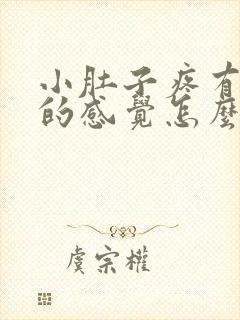 小肚子疼有
的感覺怎麼
虞宗權